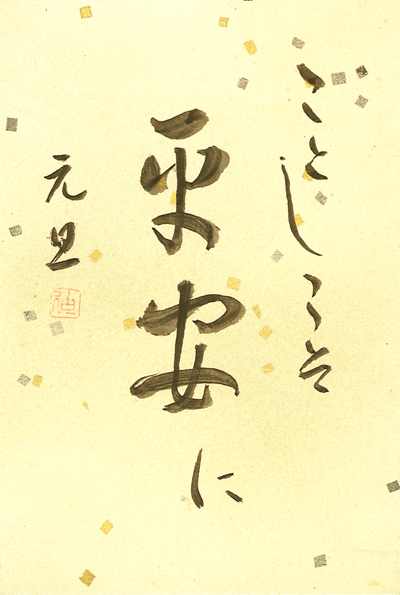 ことしこそ
平安に
元旦